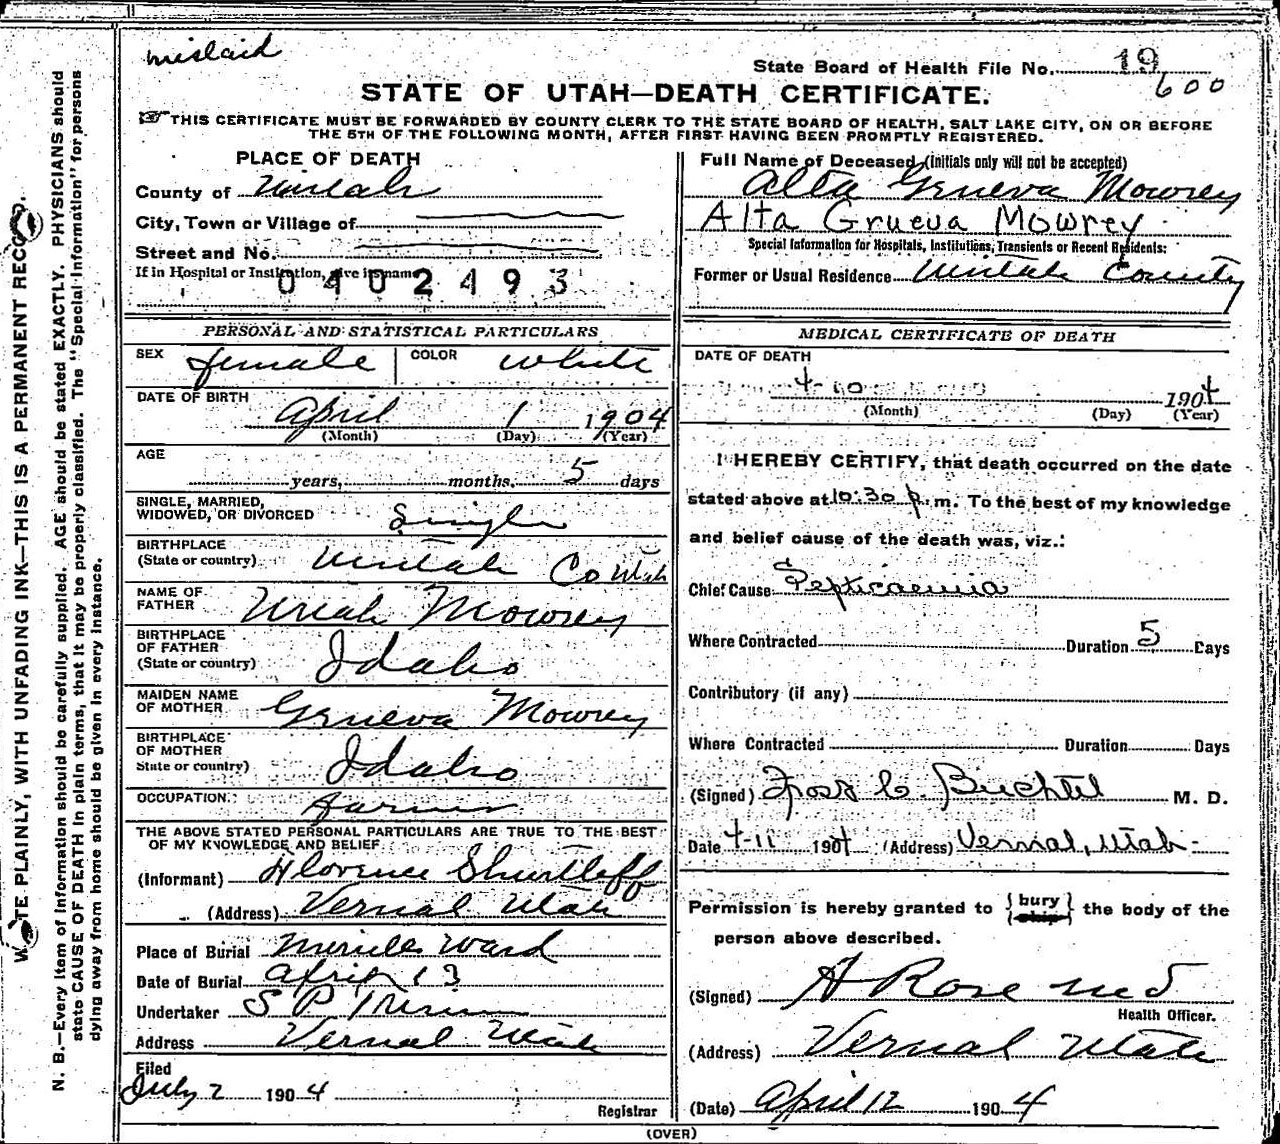 mislaid
State Board of Health File No. 19
600
STATE OF UTAH—DEATH CERTIFICATE.
THIS CERTIFICATE MUST BE FORWARDED BY COUNTY CLERK TO THE STATE BOARD OF HEALTH, SALT LAKE CITY, ON OR BEFORE
THE 5TH OF THE FOLLOWING MONTH, AFTER FIRST HAVING BEEN PROMPTLY REGISTERED.
PLACE OF DEATH
County of Uintah
City, Town or Village of
Street and No.
If in Hospital or Institution, give its name
0402493
PERSONAL AND STATISTICAL PARTICULARS
SEX female COLOR white
DATE OF BIRTH
April 1 1904
(Month) (Day) (Year)
AGE
years, months, 5 days
SINGLE, MARRIED,
WIDOWED, OR DIVORCED Single
BIRTHPLACE
(State or country) Uintah Co Utah
NAME OF
FATHER Uriah Mowrey
BIRTHPLACE
OF FATHER
(State or country) Idaho
MAIDEN NAME
OF MOTHER Geneva Mowrey
BIRTHPLACE
OF MOTHER
State or country) Idaho
OCCUPATION: Farmer
THE ABOVE STATED PERSONAL PARTICULARS ARE TRUE TO THE BEST
OF MY KNOWLEDGE AND BELIEF
(Informant) Florence Shurtleff
(Address) Vernal Utah
Place of Burial Merrills Ward
Date of Burial April 13
Undertaker S P
Address Vernal Utah
Filed
July 2 1904
Registrar
Full Name of Deceased (Initials only will not be accepted)
Alta Geneva Mowrey
Alta Grueva Mowrey
Special Information for Hospitals, Institutions, Transients or Recent Residents:
Former or Usual Residence Uintah County
MEDICAL CERTIFICATE OF DEATH
DATE OF DEATH
4-10 1904
(Month) (Day) (Year)
I HEREBY CERTIFY, that death occurred on the date
stated above at 10:30 p.m. To the best of my knowledge
and belief cause of the death was, viz.:
Chief Cause Septicaemia
Where Contracted Duration 5 Days
Contributory (if any)
Where Contracted Duration Days
(Signed) C. Buchtel M. D.
Date 4-11 1904 (Address) Vernal, Utah
Permission is hereby granted to {bury ship} the body of the
person above described.
(Signed) A Rose MD
Health Officer.
(Address) Vernal Utah
(Date) April 12 1904
(OVER)
WRITE PLAINLY, WITH UNFADING INK—THIS IS A PERMANENT RECORD.
N. B.—Every item of information should be carefully supplied. AGE should be stated EXACTLY. PHYSICIANS should
state CAUSE OF DEATH in plain terms, that it may be properly classified. The "Special Information" for persons
dying away from home should be given in every instance.